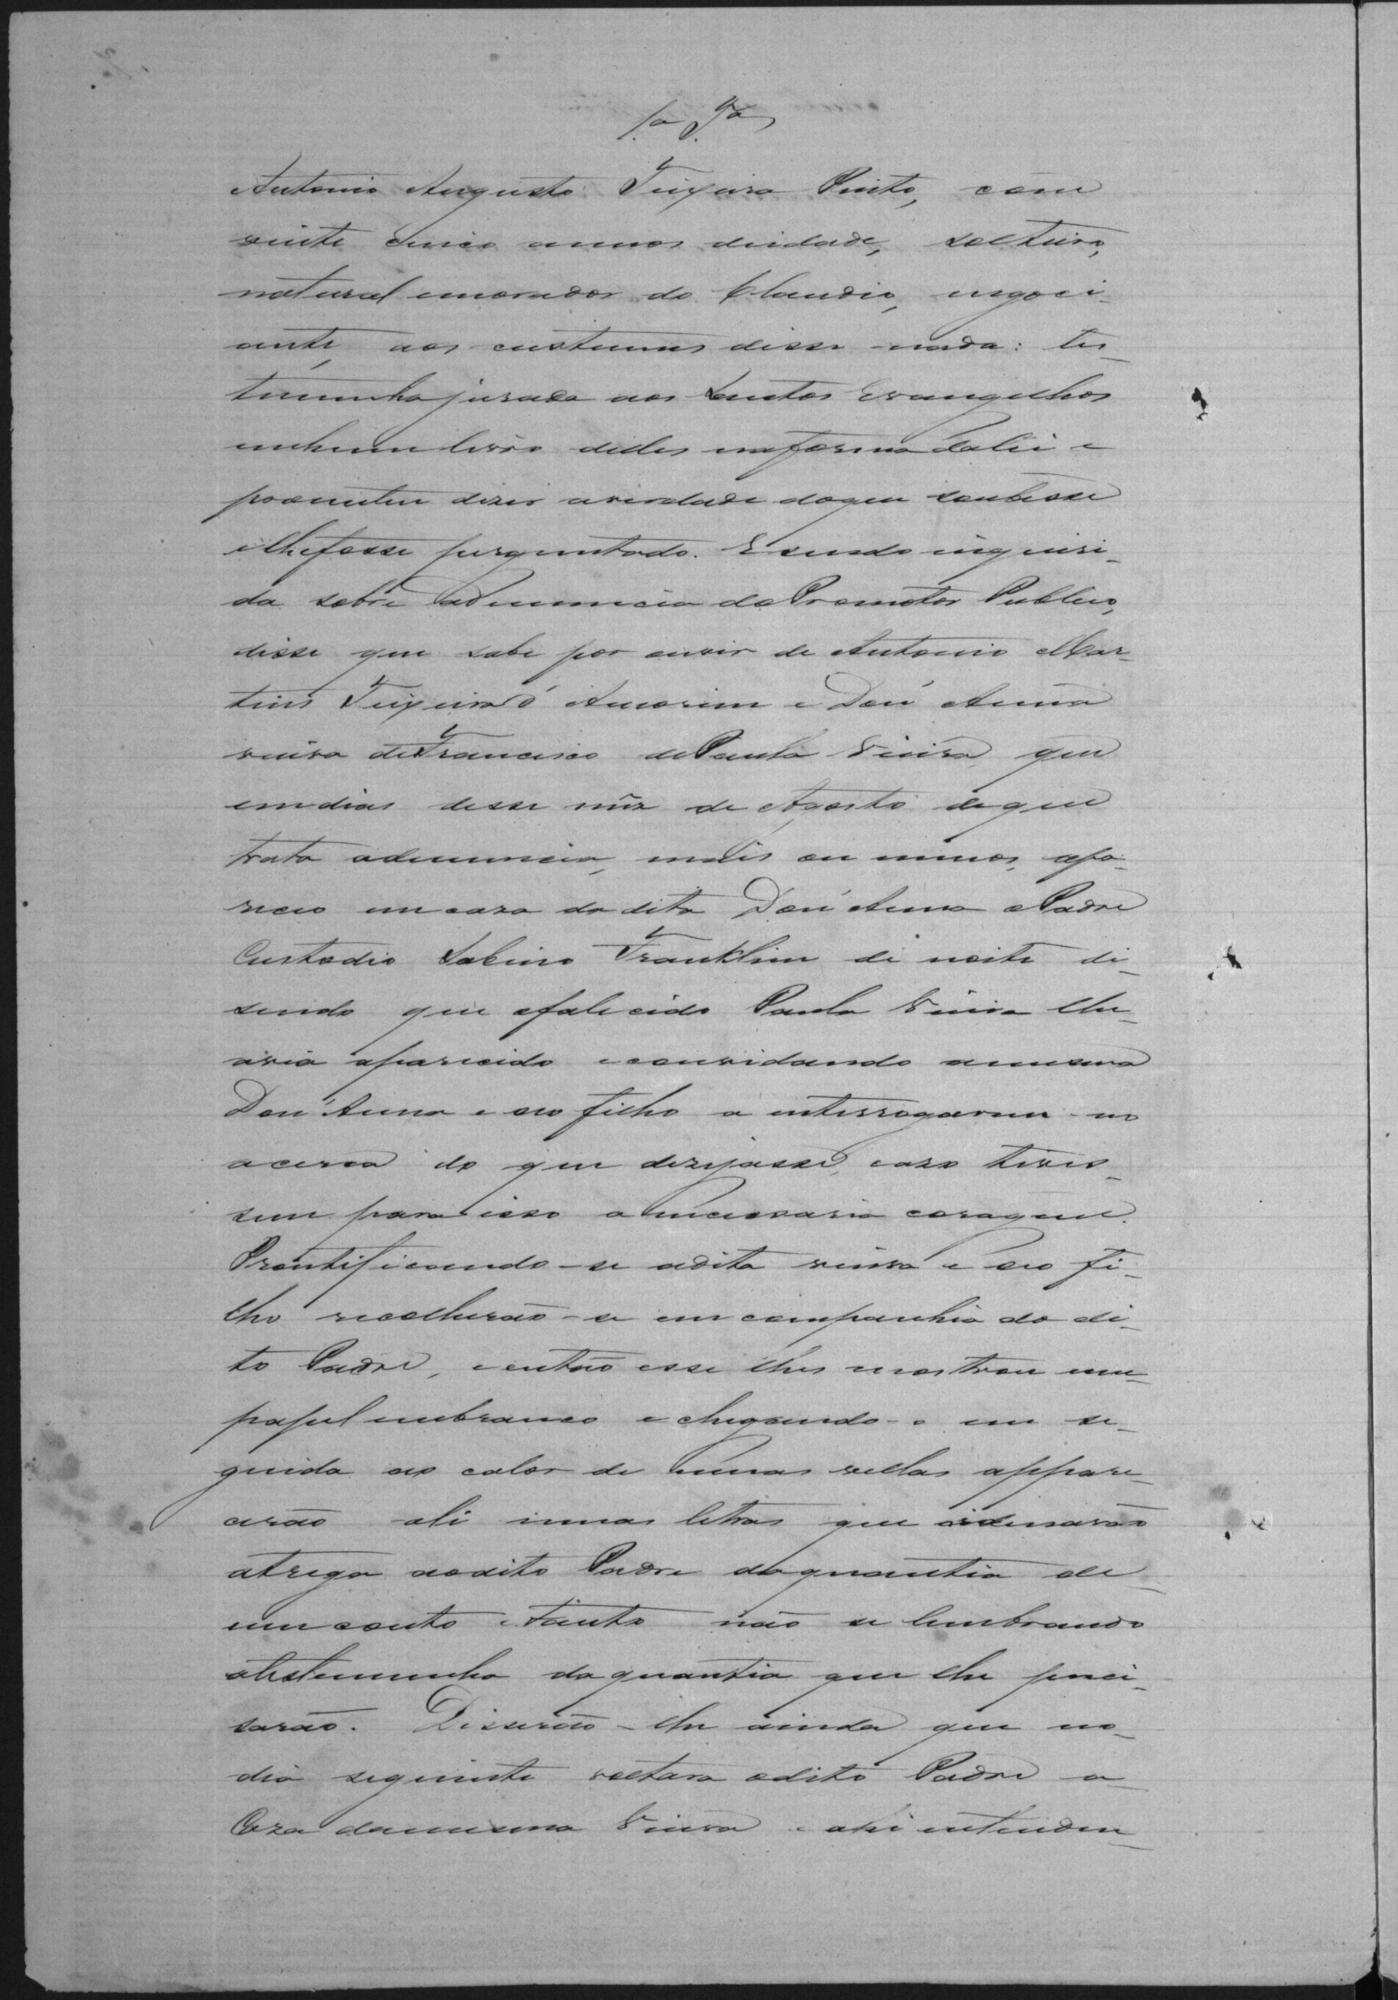 1.ª T.ª
Antonio Augusto Teixeira Pinto, com
vinte cinco annos deidade, solteiro,
natural emorador do Claudio, negoci-
ante, aos custumes disse nada: tes-
temunha jurada aos Santos Evangelhos
emhum livro delles naforma dalei e
prometeu dizer averdade doque soubesse
elhefosse perguntado. Esendo inqueri-
da sobre adenuncia doPromotor Publico,
disse que sabe por ouvir de Antonio Mar-
tins Teixeira d'Amorim e Don'Anna
viuva deFrancisco dePaula Vieira que
emdias desse mêz de Agosto deque
trata adenuncia, mais ou menos, apa-
receo emcaza dadita Don'Anna oPadre
Custodio Sabino Franklim de noite di-
sendo que ofalecido Paula Vieira lhe
avia aparecido econvidando amesma
Don'Anna e seo filho a interrogarem-no
acerca do que dezejasse, cazo tives-
sem para isso a necessaria coragem.
Prontificando-se adita viuva e seo fi-
lho recolherão-se em companhia do di-
to Padre, eentão esse lhes mostrou um
papel embranco e chegando-o em se-
guida ao calor de humas vellas appare-
cerão ali umas letras que ordenavão
atrega aodito Padre daquantia de
umconto etanto não se lembrando
atestemunha daquantia que lhe preci-
sarão. Disserão-lhe ainda que no
dia seguinte voltara odito Padre a
Caza damesma Viuva e ahi entenden-